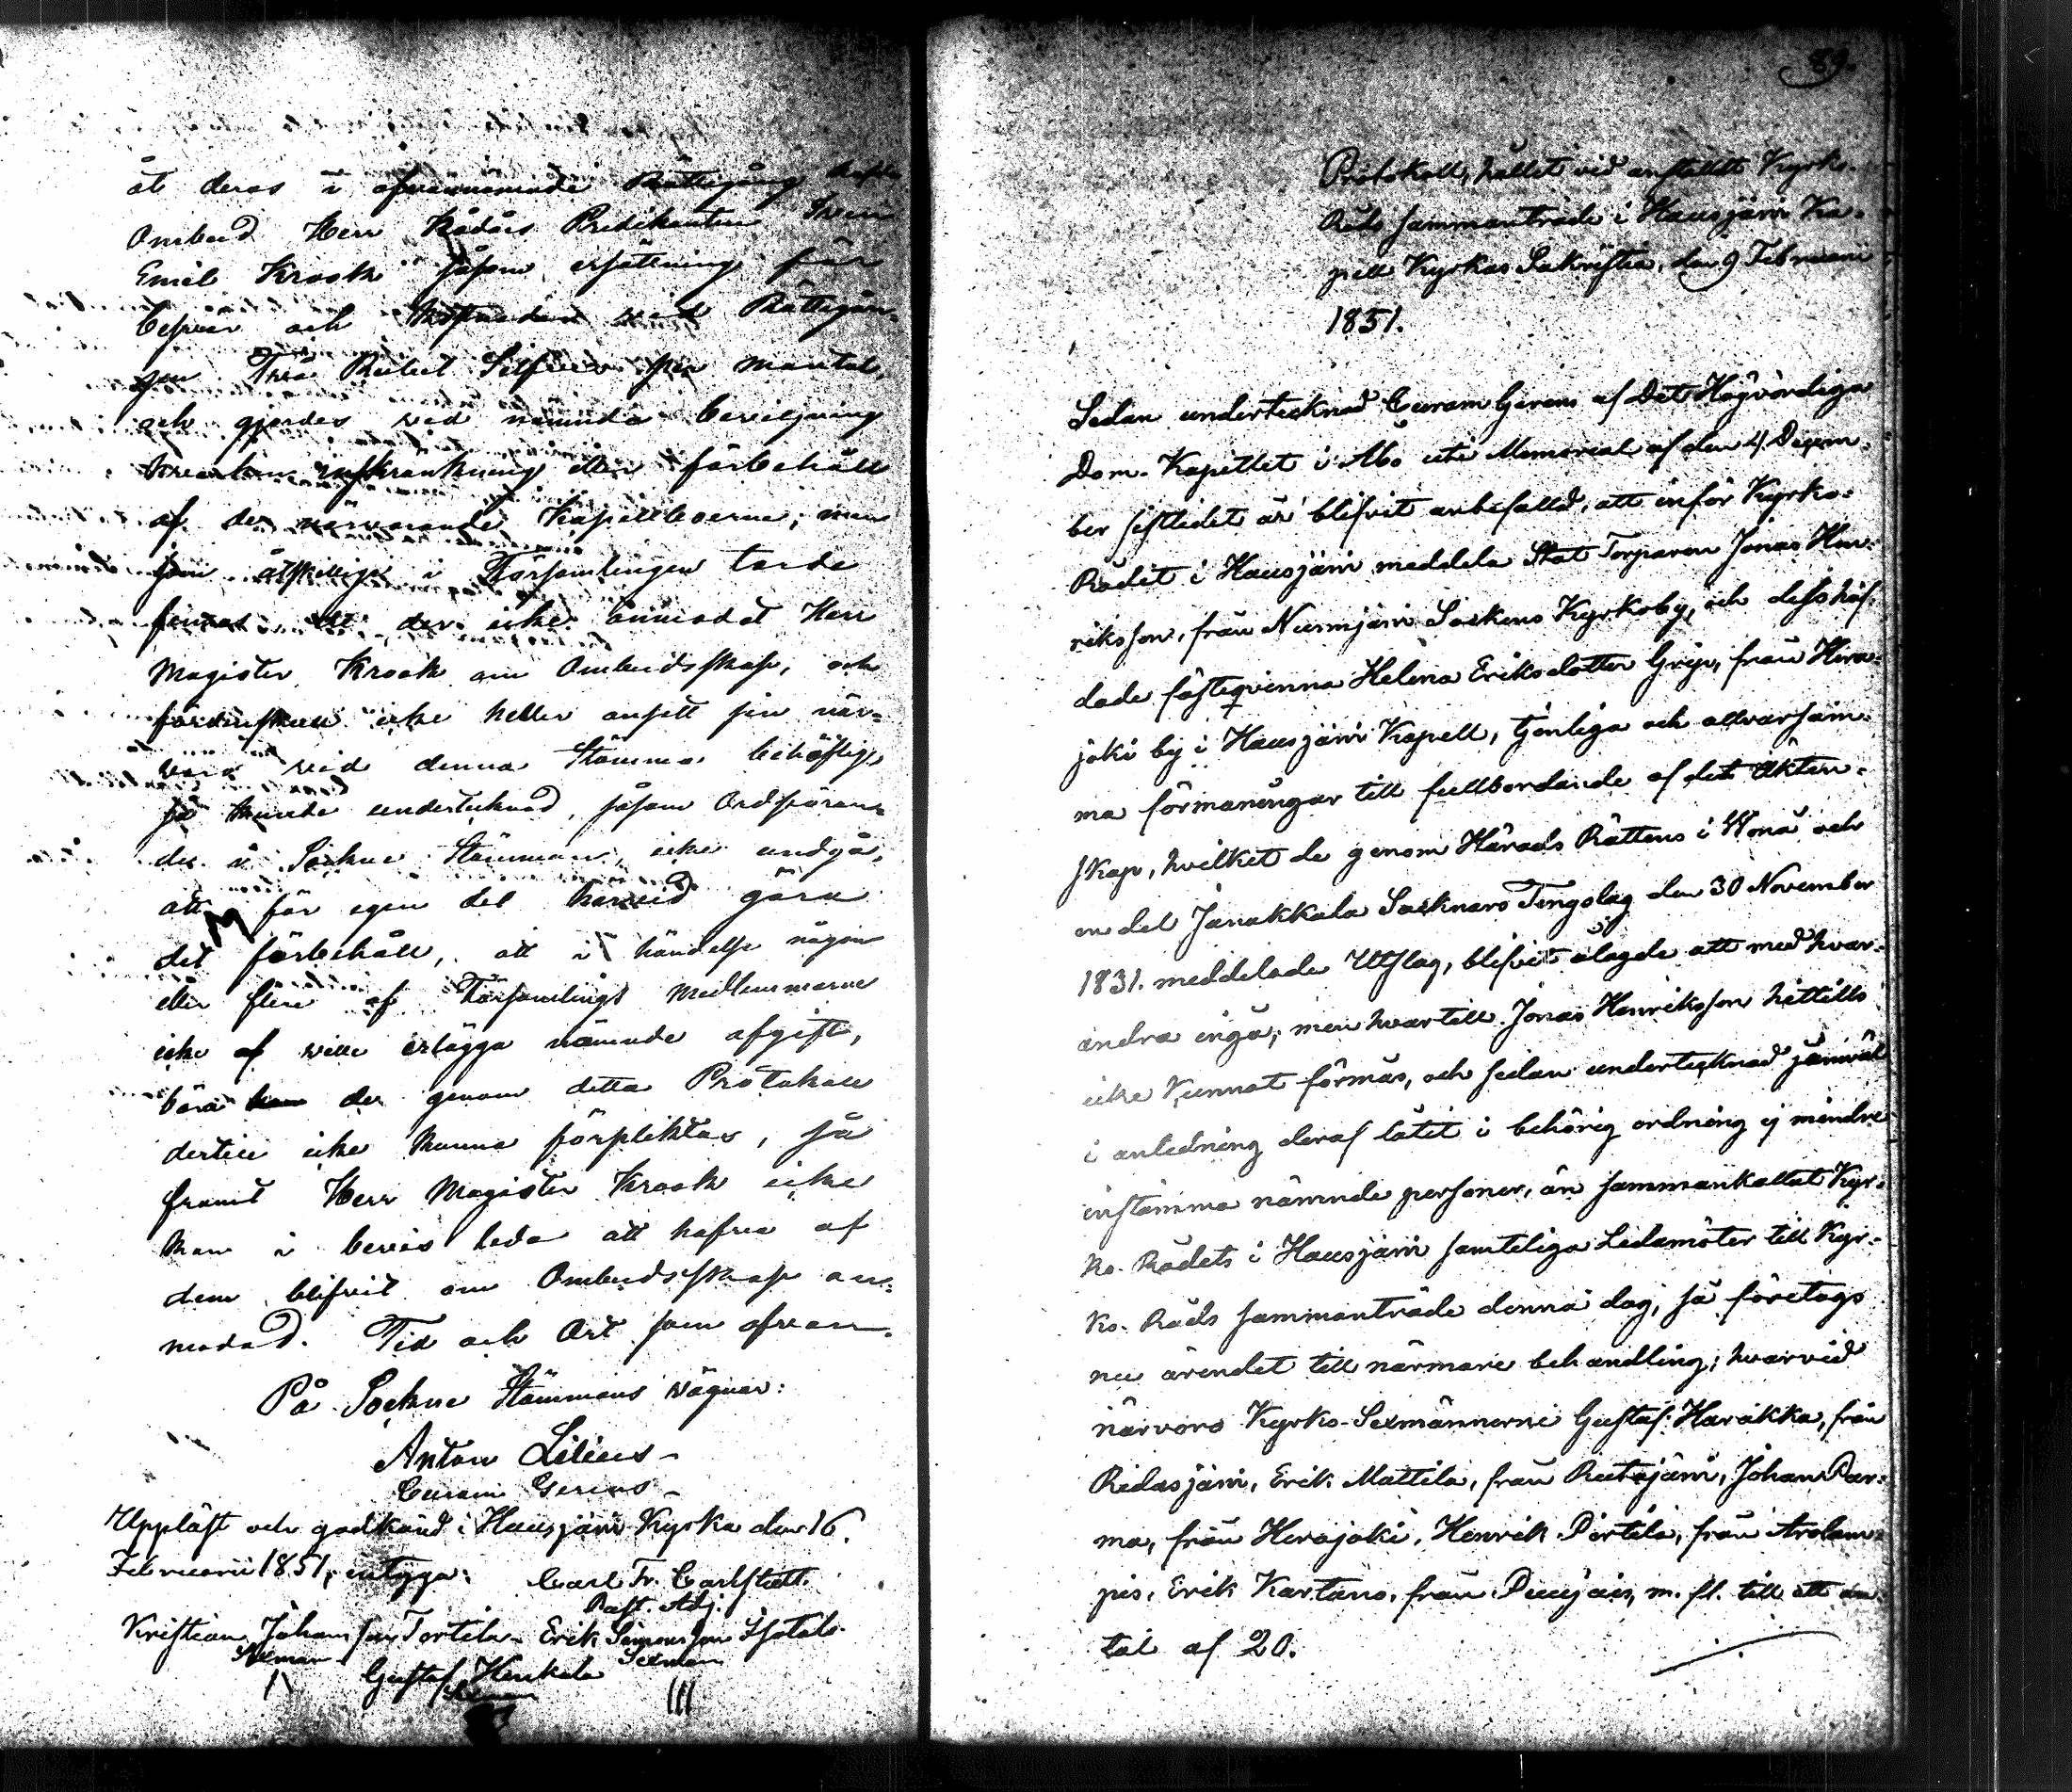 åt deras i ofvannämnde Rättegång hafda
Ombud Herr Rådårs Predikanten Sven
Emil Krook såsom ersättning för
besvär och kostnaden vid Rättegån-
gen Två Rubel Silfver per mantal,
och gjordes vid nämnda beviljning
inskränkning eller förbehåll
af de närvarande Kapellboerne; men
som åtskillige i Församlingen torde
finnas, der icke anmodat Herr
Magister Krook om Ombudsskap, och
fördenskull icke heller ansett sin när-
varo vid denna Stämma behöflig,
så kunde undertecknad, såsom Ordföran-
de i Sockne Stämman, icke undgå,
att för egen del härvid göra
det förbehåll, att i händelse någon
eller flere af Församlings medlemmarne
icke af ville erlägga nämnde afgift,
böra de genom detta Protokoll
dertill icke kunna förpliktas, så
framt Herr Magister Krook icke
kan i bevis leda att hafva af
dem blifvit om Ombudsskap an-
modad. Tid och Ort som ofvan.
På Sockne Stämmans vägnar:
Anton Lilius
Curam Gerens
Uppläst och godkänd i Hausjärvi Kyrka den 16
Februarii 1851, intyga:
Carl Fr. Carlstedt.
Past. Adj.
Kristian Johansson Tortila Erik Simonsson Isotalo
Sexman Sexman
Gustaf Heukala
Sexman
89.
Protokoll, hållet vid anstäldt Kyrko-
Råds sammanträde i Hausjärvi Ka-
pell Kyrkas Sakristia, den 9 Februarii
1851.
Sedan undertecknad Curam Gerens af Det Högvördiga
Dom-Kapitlet i Åbo uti Memorial af den 4 Decem-
ber sistledet år blifvit anbefalld, att inför Kyrko-
Rådet i Hausjärvi meddela Stat Torparen Jonas Hen-
riksson, från Nurmijärvi Sockens Kyrkoby, och dess häf-
dade fästeqvinna Helena Eriksdotter Grip, från Hera-
joki by i Hausjärvi Kapell, tjenliga och allvarsam-
ma förmaningar till fullbordande af det Äkten-
skap, hvilket de genom Härads Rättens i Wånå och
en del Janakkala Socknars Tingslag den 30 November
1831. meddelade Utslag, blifvit ålagde att med hvar-
andra ingå; men hvartill Jonas Henriksson hittills
icke kunnat förmås, och sedan undertecknad jämväl
i anledning deraf låtit i behörig ordning ej mindre
instämma nämnde personer, än sammankallat Kyr-
ko-Rådets i Hausjärvi samteliga Ledamöter till Kyr-
ko-Råds sammanträde denna dag, så företogs
nu ärendet till närmare behandling; hvarvid
närvoro Kyrko-Sexmännerne Gustaf Harakka, från
Ridasjärvi, Erik Mattila, från Rutajärvi, Johan Par-
ma, från Herajoki, Henrik Pirtilä, från Arolam-
pis, Erik Kartano, från Puujais, m. fl. till ett an-
tal af 20.